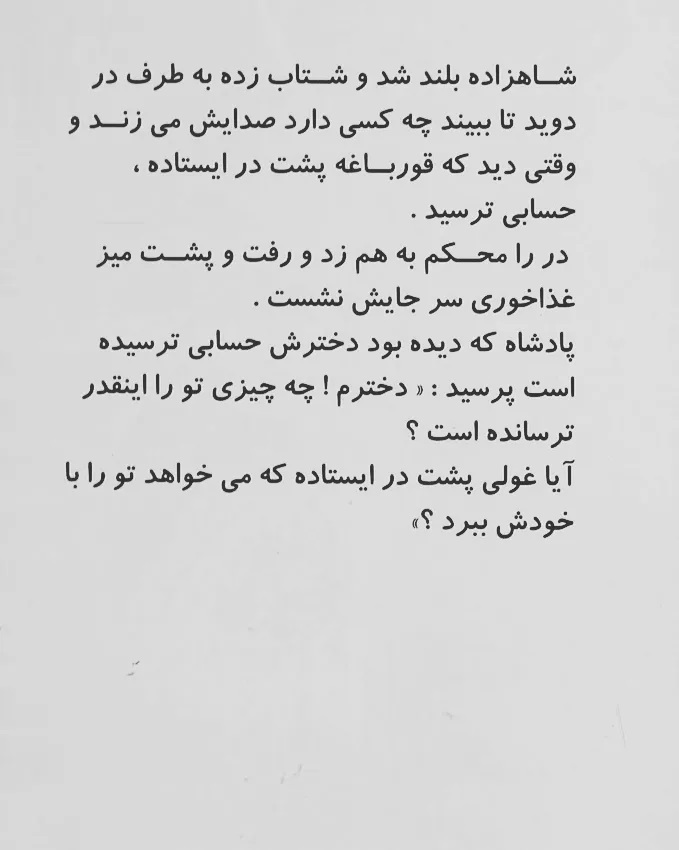 شاهزاده بلند شد و شتاب زده به طرف در
دوید تا ببیند چه کسی دارد صدایش می زند و
وقتی دید که قورباغه پشت در ایستاده ،
حسابی ترسید .
در را محکم به هم زد و رفت و پشت میز
غذاخوری سر جایش نشست .
پادشاه که دیده بود دخترش حسابی ترسیده
است پرسید : « دخترم ! چه چیزی تو را اینقدر
ترسانده است ؟
آیا غولی پشت در ایستاده که می خواهد تو را با
خودش ببرد ؟»